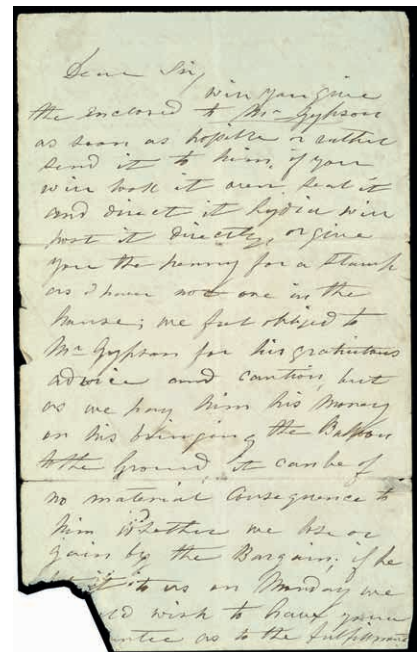 Dear Sir,
will you give
the enclosed to Mr Gypson
as soon as possible or rather
send it to him, if you
will look it over. seal it
and direct it Lydia will
post it directly, or give
you the penny for a stamp
as I have not one in the
house; we feel obliged to
Mr Gypson for his gratuitous
advice and caution, but
as we pay him his money
on his bringing the Balloon
to the Ground, it can be of
no material Consequence to
him whether we lose or
gain by the Bargain; if he
it to us on Monday we
wish to have your
as to the fulfilment